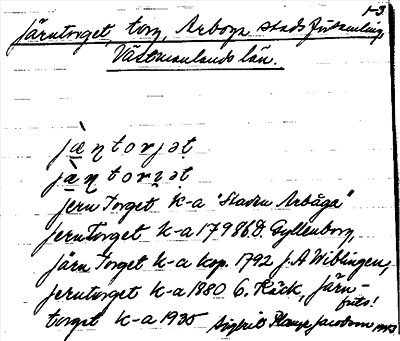 1-3
Järntorget, torg, Arboga stads församling,
Västmanlands län.
jæ̀ɳtorjət
jæ̀ɳtorʒət
jern Torget k-a "Staden Arbåga"
jerntorget k-a 1798 G. Gyllenborg,
Järn Torget k-a kop. 1792 J.A. Wiblingen,
jerntorget k-a 1880 C. Räck, Järn-
torget k-a 1935 Sigbrit Plænge Jacobson